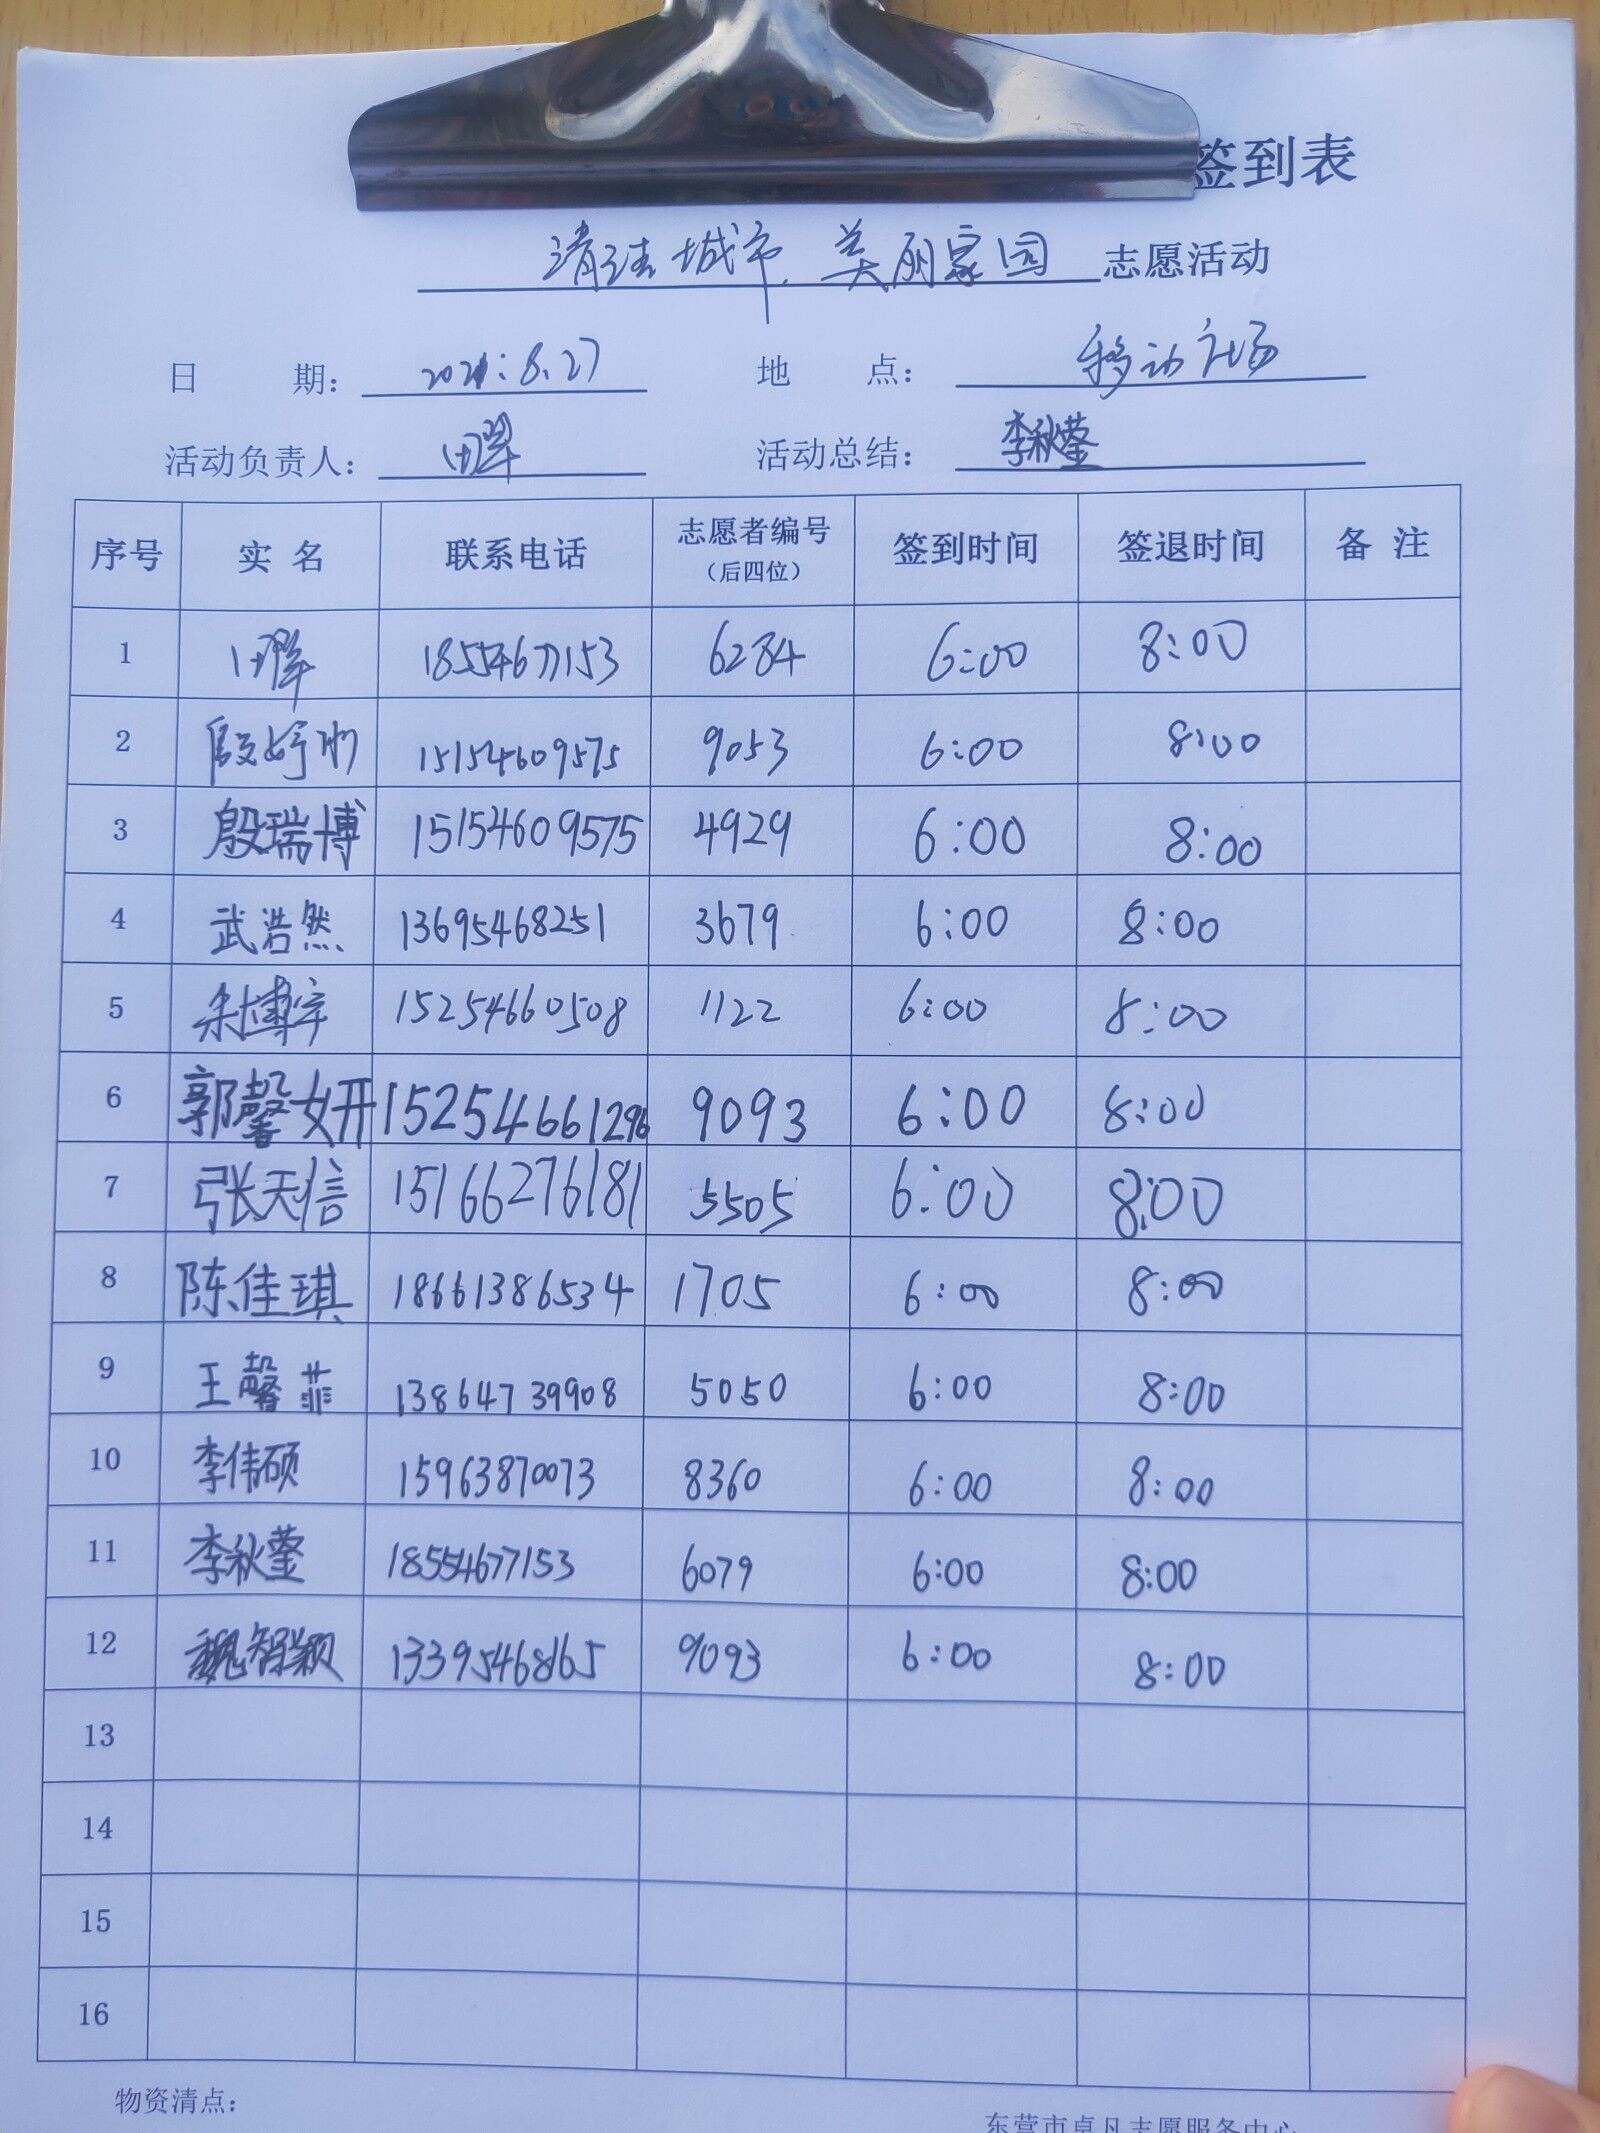 签到表
清洁城市.美丽家园 志愿活动
日 期: 2021:8.27 地 点: 移动广场
活动负责人: 田翠 活动总结: 李秋蓥
序号 实名 联系电话 志愿者编号(后四位) 签到时间 签退时间 备注
1 田翠 18554677153 6284 6:00 8:00
2 殷妤 15154609575 9053 6:00 8:00
3 殷瑞博 15154609575 4929 6:00 8:00
4 武浩然 13695468251 3679 6:00 8:00
5 博宇 15254660508 1122 6:00 8:00
6 郭馨妍 15254661296 9093 6:00 8:00
7 张天信 15166276181 5505 6:00 8:00
8 陈佳琪 18661386534 1705 6:00 8:00
9 王馨菲 13864739908 5050 6:00 8:00
10 李伟硕 15963870073 8360 6:00 8:00
11 李秋蓥 18554677153 6079 6:00 8:00
12 魏智颖 13395468165 9093 6:00 8:00
13
14
15
16
物资清点:
东营市卓凡志愿服务中心